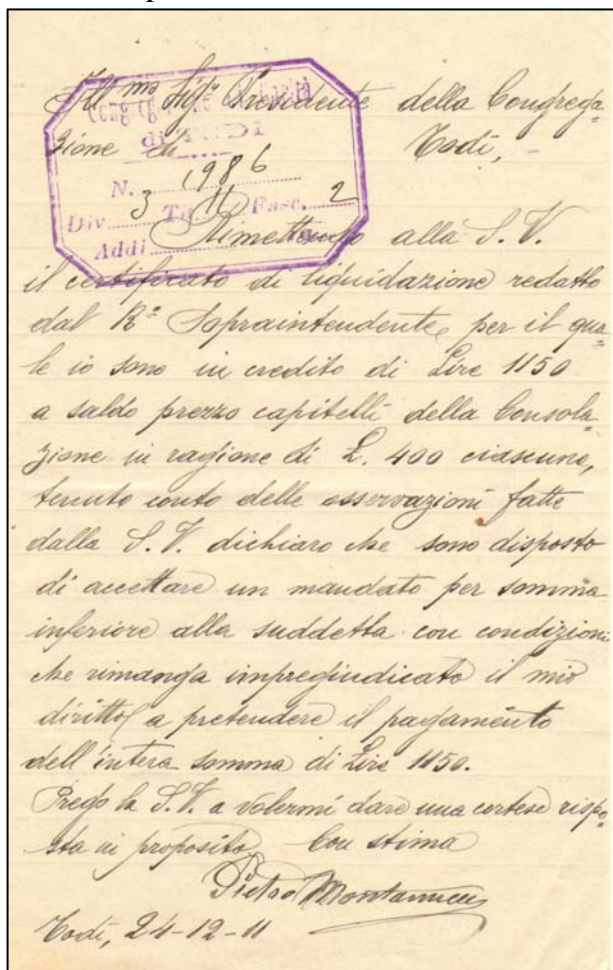 Ill.mo Sig.r Presidente della Congrega=
zione di Todi, -
Congregazione di Carità
di TODI
N. 1986
Div. 3 Tit. 11 Fasc. 2
Addì
Rimettendo alla S. V.
il certificato di liquidazione redatto
dal R.o Sopraintendente, per il qua=
le io sono in credito di Lire 1150
a saldo prezzo capitelli della Consola=
zione in ragione di L. 400 ciascuno,
tenuto conto delle osservazioni fatte
dalla S. V. dichiaro che sono disposto
di accettare un mandato per somma
inferiore alla suddetta con condizione
che rimanga impregiudicato il mio
diritto a pretendere il pagamento
dell'intera somma di Lire 1150.
Prego la S. V. a volermi dare una cortese rispo=
sta in proposito, Con stima
Pietro Montanucci
Todi, 24-12-11